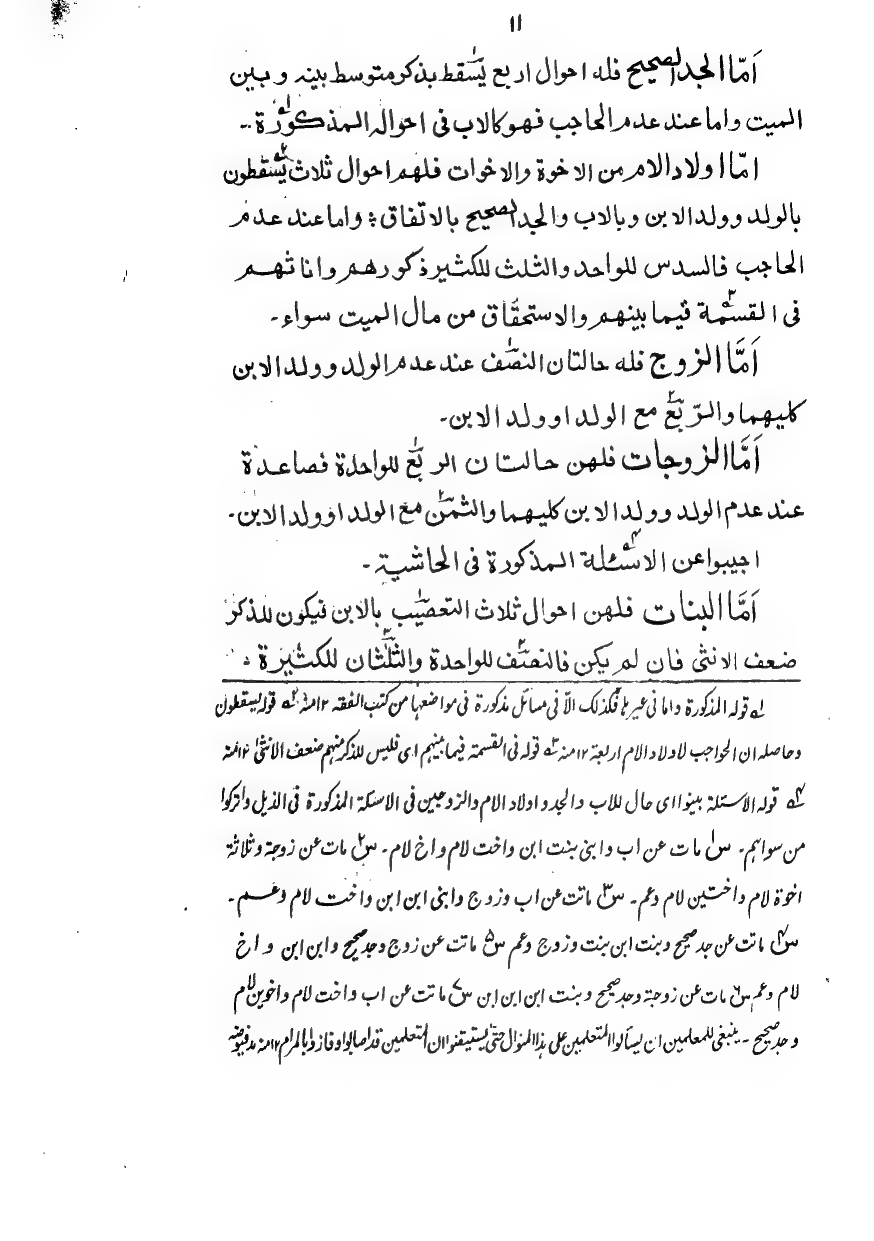 ١١
اَمّا الجد الصحیح فله احوال اربع یسقط بذکر متوسط بینہ و بین
المیت واما عند عدم الحاجب فھو کالاب فی احوالہ المذکورة۔
امّا اولاد الام من الاخوة والاخوات فلھم احوال ثلاث یسقطون
بالولد وولد الابن وبالاب والجد الصحیح بالاتفاق واما عند عدم
الحاجب فالسدس للواحد والثلث للکثیر ذکورھم واناثھم
فی القسمة فیما بینھم والاستحقاق من مال المیت سواء۔
اَمَّا الزوج فله حالتان النصف عند عدم الولد وولد الابن
کلیھما والرّبع مع الولد او ولد الابن۔
اَمَّا الزوجات فلھن حالتان الربع للواحدة فصاعدة
عند عدم الولد وولد الابن کلیھما والثمن مع الولد او ولد الابن۔
اجیبوا عن الاسئلة المذکورة فی الحاشیة۔
اَمَّا البنات فلھن احوال ثلاث التعصیب بالابن فیکون للذکر
ضعف الانثی فان لم یکن فالنصف للواحدة والثلثان للکثیرة
لہ قولہ المذکورة واما فی غیرھا فکذلک الاّ فی مسائل مذکورة فی مواضعہا من کتب الفقہ ١٢ منہ ٢ہ قولہ یسقطون
وحاصلہ ان الحواجب لاولاد الام اربعة ١٢ منہ ٣ہ قولہ فی القسمة فیما بینہم ای فلیس للذکر منہم ضعف الانثی ١٢ منہ
٤ہ قولہ الاسئلة بینوا ای حال للاب والجد و اولاد الام والزوجین فی الاسئلة المذکورة فی الذیل واترکوا
من سواہم۔ س١ مات عن اب وابنی بنت ابن واخت لام واخ لام۔ س٢ مات عن زوجة وثلاثة
اخوة لام واختین لام وعم۔ س٣ ماتت عن اب وزوج وابنی ابن ابن واخت لام وعم۔
س٤ ماتت عن جد صحیح وبنت ابن بنت وزوج وعم س٥ ماتت عن زوج وجد صحیح وابن ابن واخ
لام وعم س٦ مات عن زوجة وجد صحیح وبنت ابن ابن ابن س٧ ماتت عن اب واخت لام واخوین لام
وجد صحیح۔ ینبغی للمعلمین ان یسألوا المتعلمین علی ہذا المنوال حتی یستیقنوا ان المتعلمین قد اصابوا وفازوا بالمرام ١٢ منہ